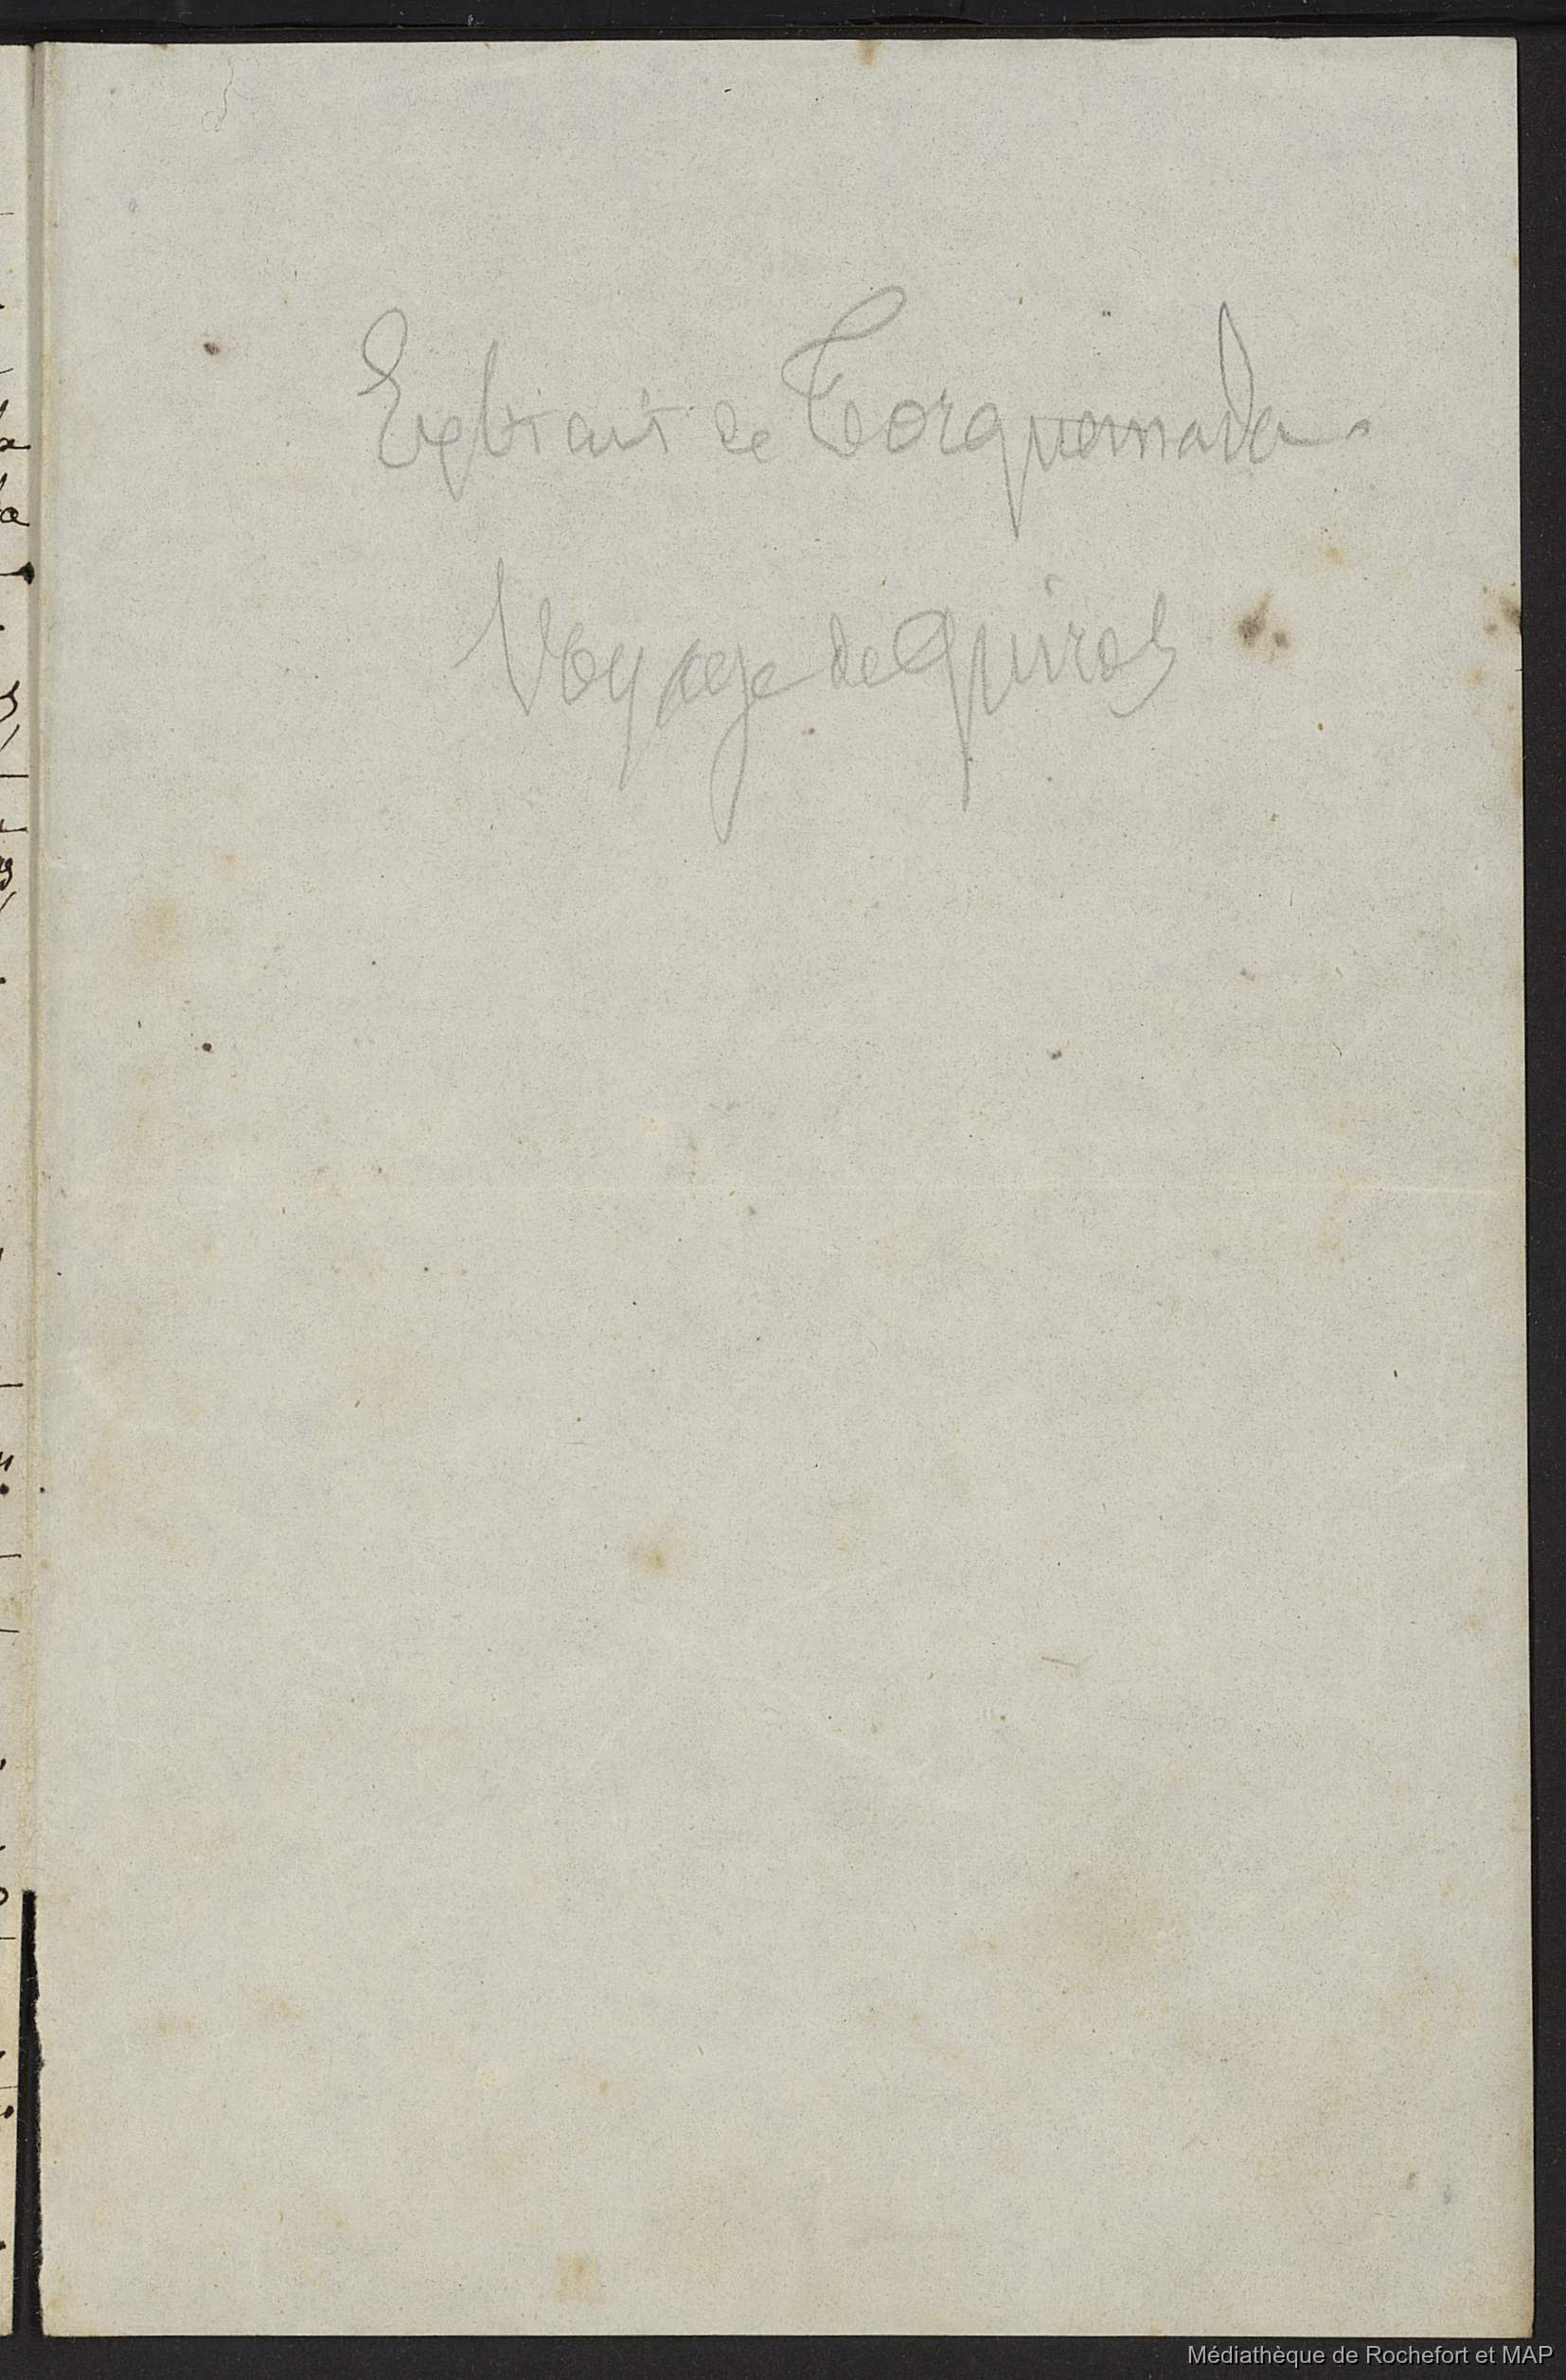 Extrait de Torquemada.
Voyage de Quiros
Médiathèque de Rochefort et MAP